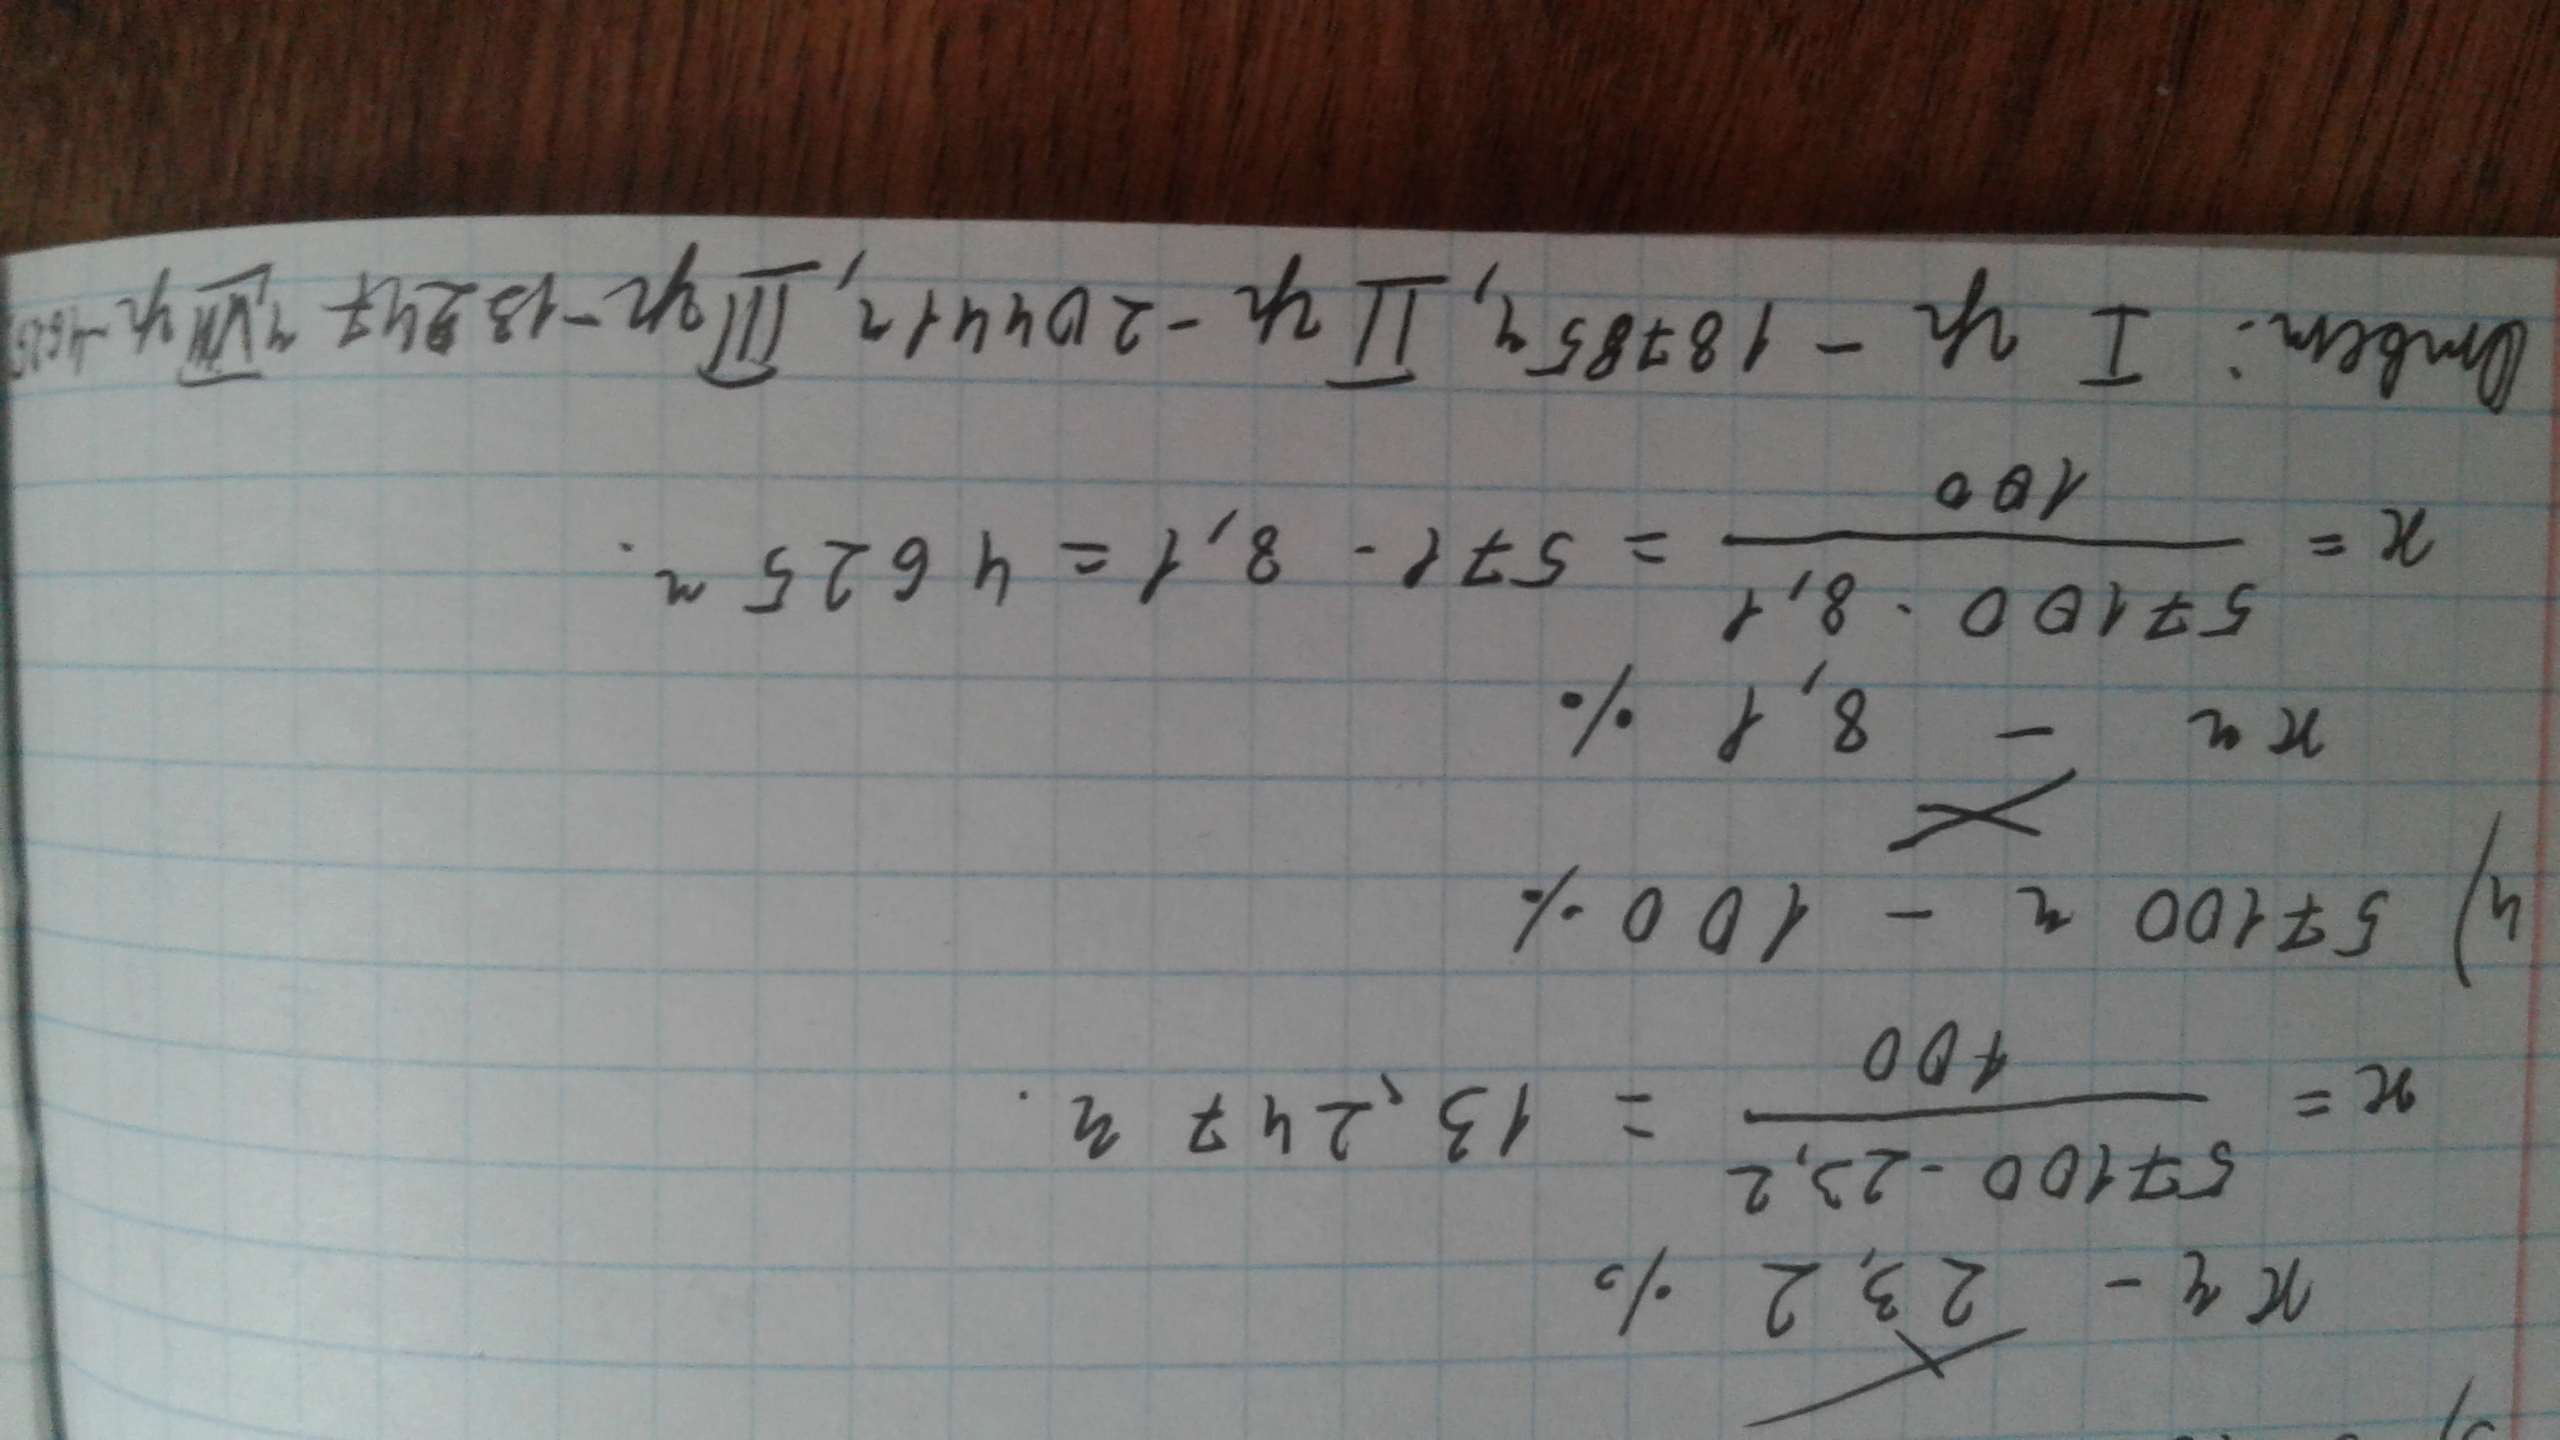 x г - 23,2 %
x = 57100 · 23,2 / 100 = 13,247 г.
4) 57100 г - 100 %
x г - 8,1 %
x = 57100 · 8,1 / 100 = 571 · 8,1 = 4625 г.
Ответ: I уч - 18785 г, II уч - 20441 г, III уч - 13247 г, VIII уч - 4625